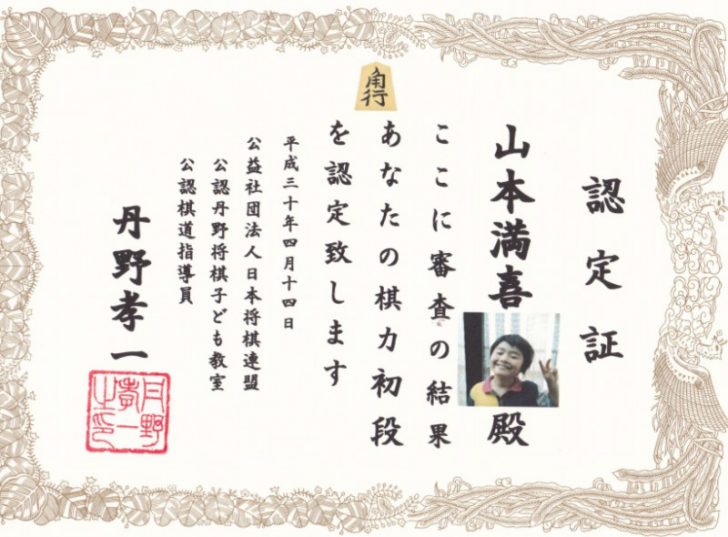 認定証
山本満喜殿
ここに審査の結果
あなたの棋力初段
を認定致します
角行
平成三十年四月十四日
公益社団法人日本将棋連盟
公認丹野将棋子ども教室
公認棋道指導員
丹野孝一
丹野孝一之印